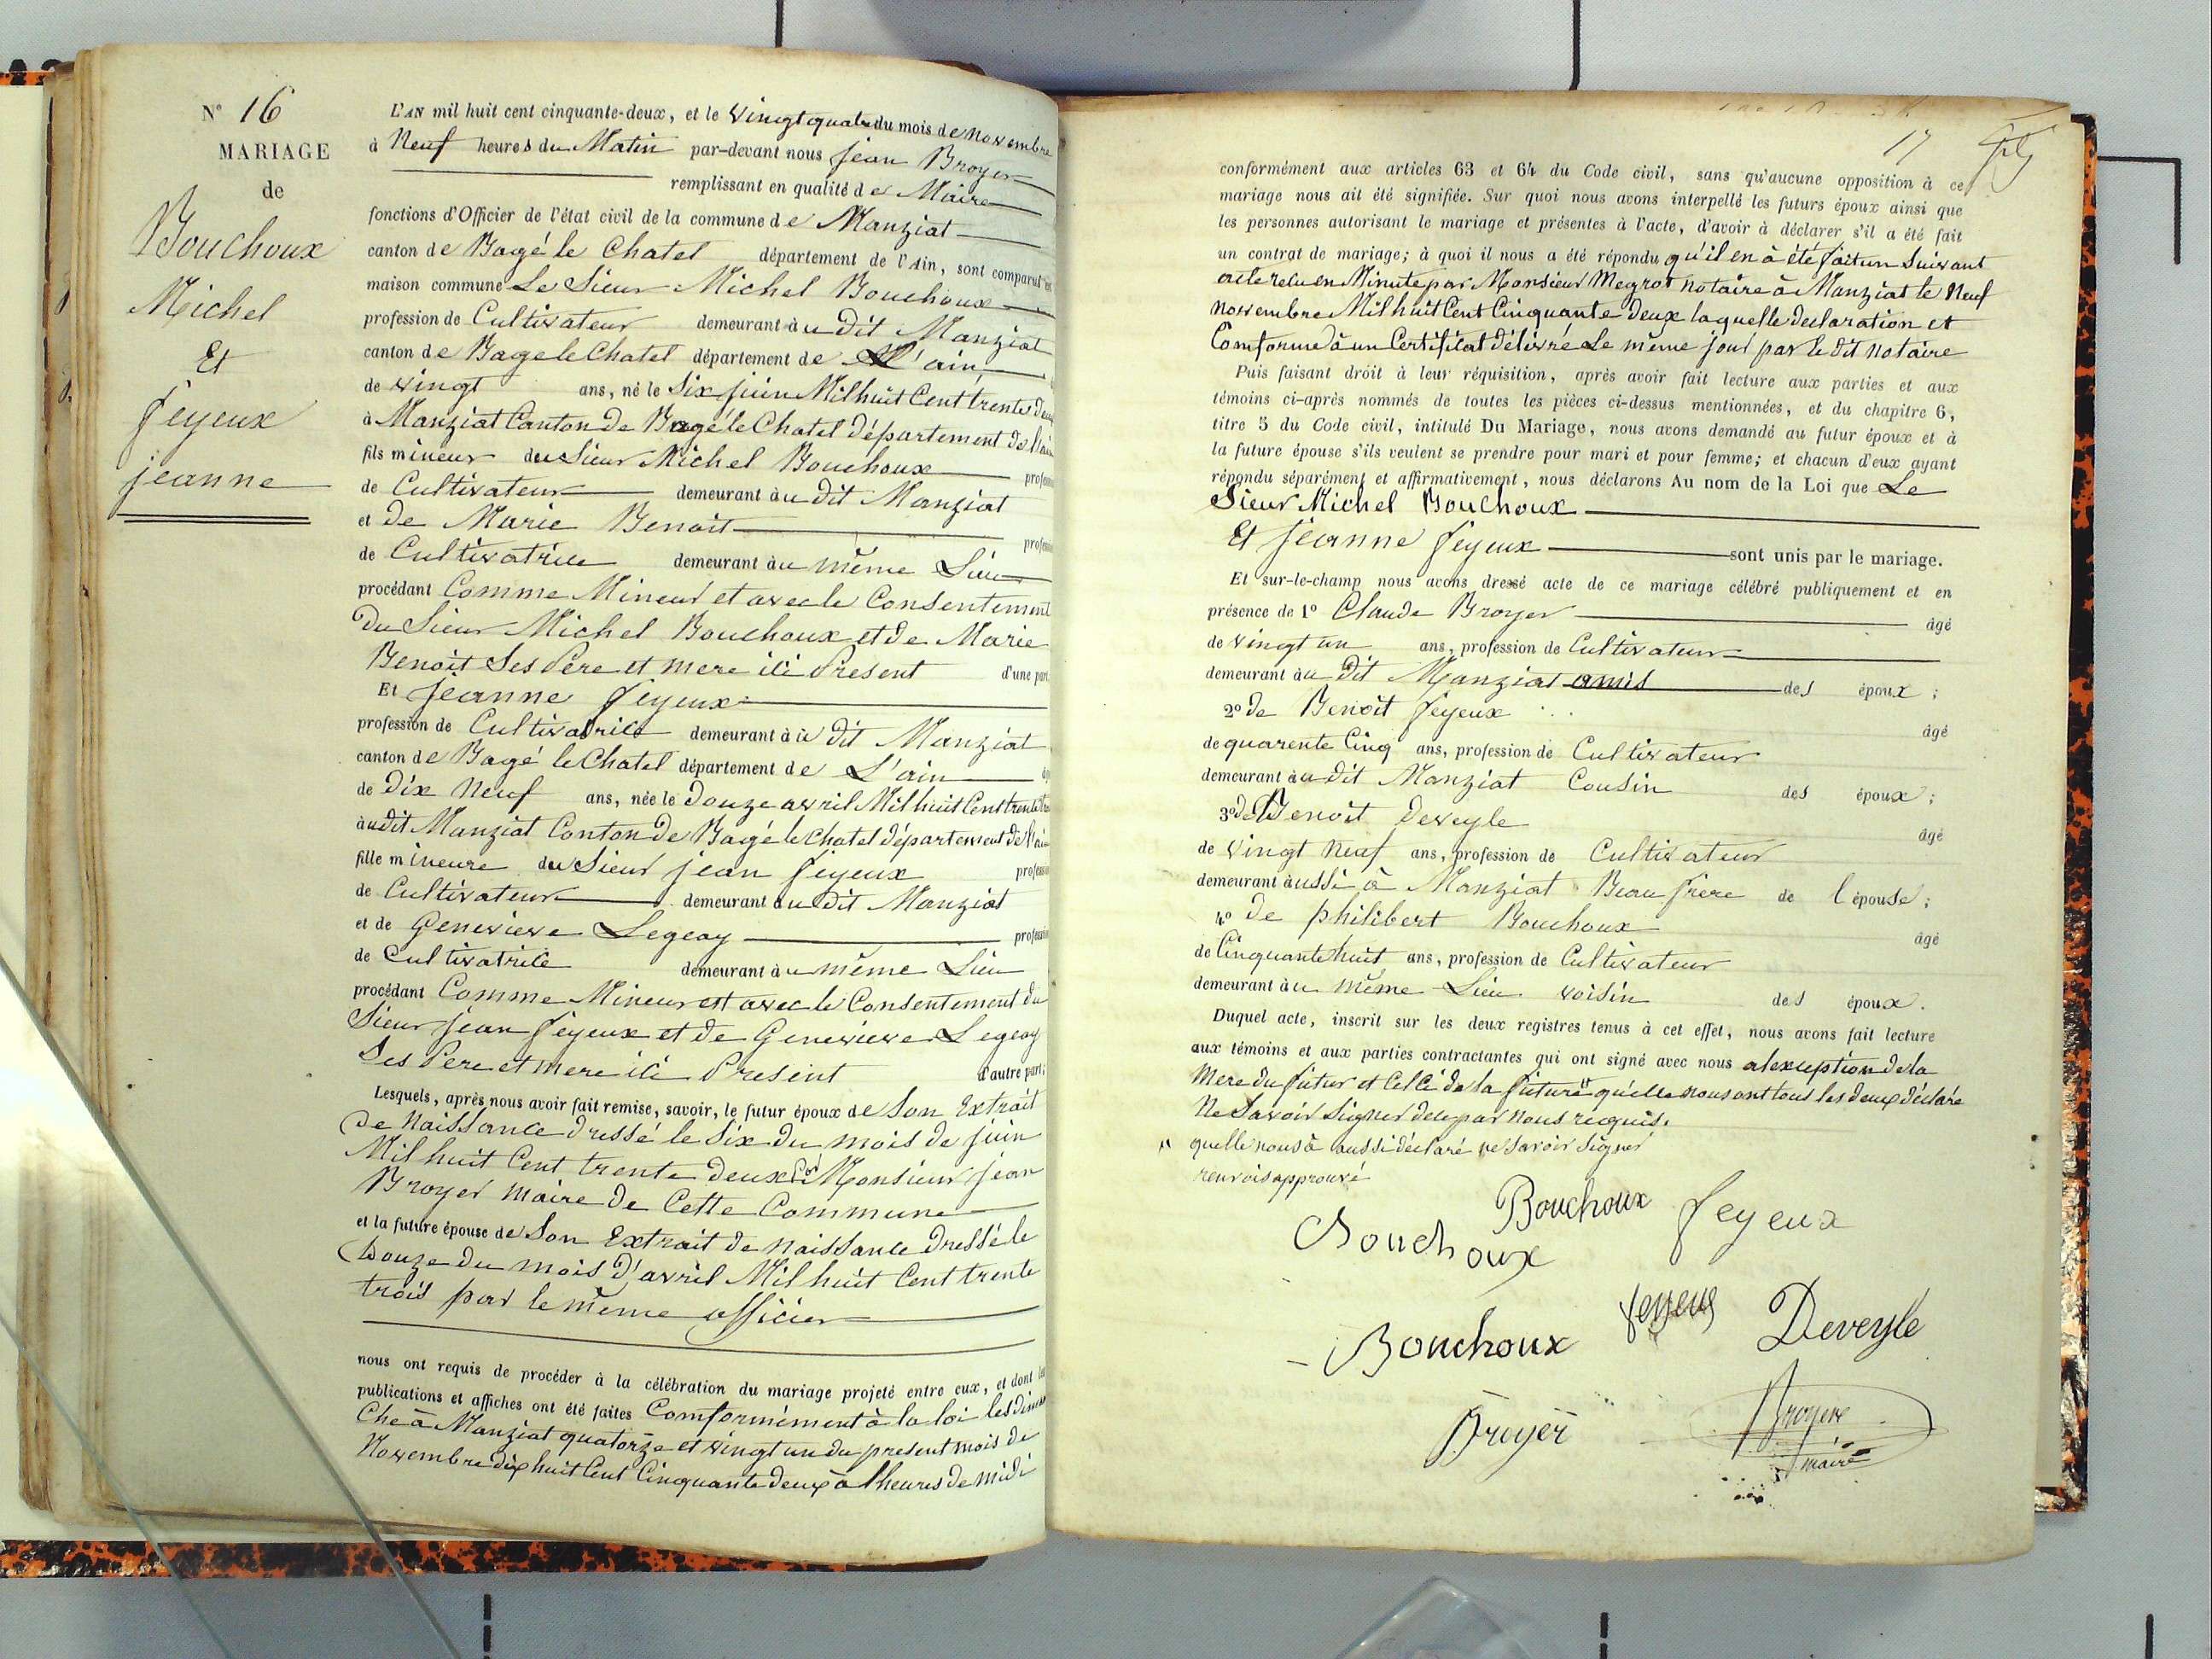 N° 16
MARIAGE
de
Bouchoux
Michel
Et
feyeux
jeanne
L'AN mil huit cent cinquante-deux, et le vingt quatre du mois de Novembre
à Neuf heures du Matin par-devant nous jean Broyer
remplissant en qualité de Maire
fonctions d'Officier de l'état civil de la commune de Manziat
canton de Bagé le Chatel département de l'Ain, sont comparut en
maison commune Le Sieur Michel Bouchoux
profession de Cultivateur demeurant àu dit Manziat
canton de Bagé le Chatel département de L'ain
de vingt ans, né le Six juin Mil huit Cent trente deux
à Manziat Canton de Bagé le Chatel département de l'ain
fils mineur du Sieur Michel Bouchoux profession
de Cultivateur demeurant àu dit Manziat
et de Marie Benoit profession
de Cultivatrice demeurant àu même Lieu
procédant Comme Mineur et avec le Consentement
Du Sieur Michel Bouchoux et de Marie
Benoit Ses Père et mere ici Present d'une part
Et jeanne feyeux
profession de Cultivatrice demeurant àu dit Manziat
canton de Bagé le Chatel département de L'ain
de Dix Neuf ans, née le Douze avril Mil huit Cent trente trois
àudit Manziat Canton de Bagé le Chatel département de l'ain
fille mineure du Sieur jean feyeux profession
de Cultivateur demeurant au dit Manziat
et de Genevieve Legeay profession
de Cultivatrice demeurant àu même Lieu
procédant Comme Mineur et avec le Consentement du
Sieur jean feyeux et de Genevieve Legeay
Ses Pere et mere ici Present d'autre part;
Lesquels, après nous avoir fait remise, savoir, le futur époux de Son Extrait
De Naissance dressé le Six du mois de juin
Mil huit Cent trente deux Par Monsieur jean
Broyer maire de Cette Commune
et la future épouse de Son Extrait de naissance dressé le
Douze du mois D'avril Mil huit Cent trente
trois par le même officier
nous ont requis de procéder à la célébration du mariage projeté entre eux, et dont les
publications et affiches ont été faites Comformément à la loi les diman
Che à Manziat quatorze et vingt un du present mois de
Novembre dix huit Cent Cinquante deux à l heures de midi
17
conformément aux articles 63 et 64 du Code civil, sans qu'aucune opposition à ce
mariage nous ait été signifiée. Sur quoi nous avons interpellé les futurs époux ainsi que
les personnes autorisant le mariage et présentes à l'acte, d'avoir à déclarer s'il a été fait
un contrat de mariage; à quoi il nous a été répondu qu'il en à été fait un Suivant
acte relu en Minute par Monsieur Meyrot notaire à Manziat le Neuf
novembre Mil huit Cent Cinquante deux laquelle declaration et
Comforme à un Certificat délivré Le même jour par le dit notaire
Puis faisant droit à leur réquisition, après avoir fait lecture aux parties et aux
témoins ci-après nommés de toutes les pièces ci-dessus mentionnées, et du chapitre 6,
titre 5 du Code civil, intitulé Du Mariage, nous avons demandé au futur époux et à
la future épouse s'ils veulent se prendre pour mari et pour femme; et chacun d'eux ayant
répondu séparément et affirmativement, nous déclarons Au nom de la Loi que Le
Sieur Michel Bouchoux
Et jeanne feyeux sont unis par le mariage.
Et sur-le-champ nous avons dressé acte de ce mariage célébré publiquement et en
présence de 1° Claude Broyer âgé
de vingt un ans, profession de Cultivateur
demeurant àu dit Manziat amis des époux;
2° de Benoit feyeux âgé
de quarente Cinq ans, profession de Cultivateur
demeurant àu dit Manziat Cousin des époux;
3° de Benoit Deveyle âgé
de vingt Neuf ans, profession de Cultivateur
demeurant àussi à Manziat Beau frère de l épouse;
4° De philibert Bouchoux âgé
de Cinquante huit ans, profession de Cultivateur
demeurant àu même Lieu voisin des époux.
Duquel acte, inscrit sur les deux registres tenus à cet effet, nous avons fait lecture
aux témoins et aux parties contractantes qui ont signé avec nous a l exception de la
Mere du futur et Celle de la future qu'elle nous ont tous les deux déclaré
Ne Savoir Signer de ce par nous requis.
quelle nous à aussi déclaré ne Savoir Signer
renvois approuvé
Bouchoux feyeux
Bouchoux
feyeux Deveyle
Bouchoux
Broyer Broyer
maire